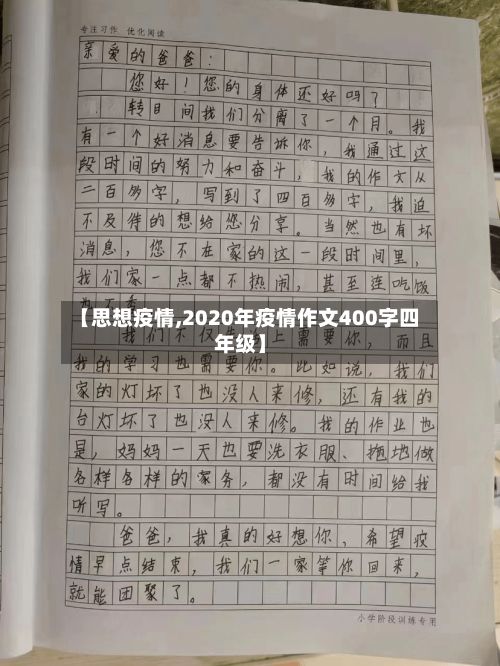 专注习作 优化阅读
亲爱的爸爸：
您好！您的身体还好吗？
转目间我们分离了一个月。我
有一个好消息要告诉你，我通过这
段时间的努力和奋斗，我的作文从
二百多字，写到了四百多字，我迫
不及待的想给您分享。当然也有坏
消息，您不在家的这一段时间里，
我们家一点都不热闹，甚至连吃饭
【思想疫情,2020年疫情作文400字四
年级】
我们不仅生 上需要你，而且
我的学习也需要你。比如说，我们
家的灯坏了也没人来修，还有我的
台灯坏了也没人来修。我的作业也
是，妈妈一天也要洗衣服、拖地做
各样各样的家务，都没有时间给我
听写。
爸爸，我真的好想你，希望疫
情早点结束，我们一家等你回来，
就能团聚了。
小学阶段训练专用